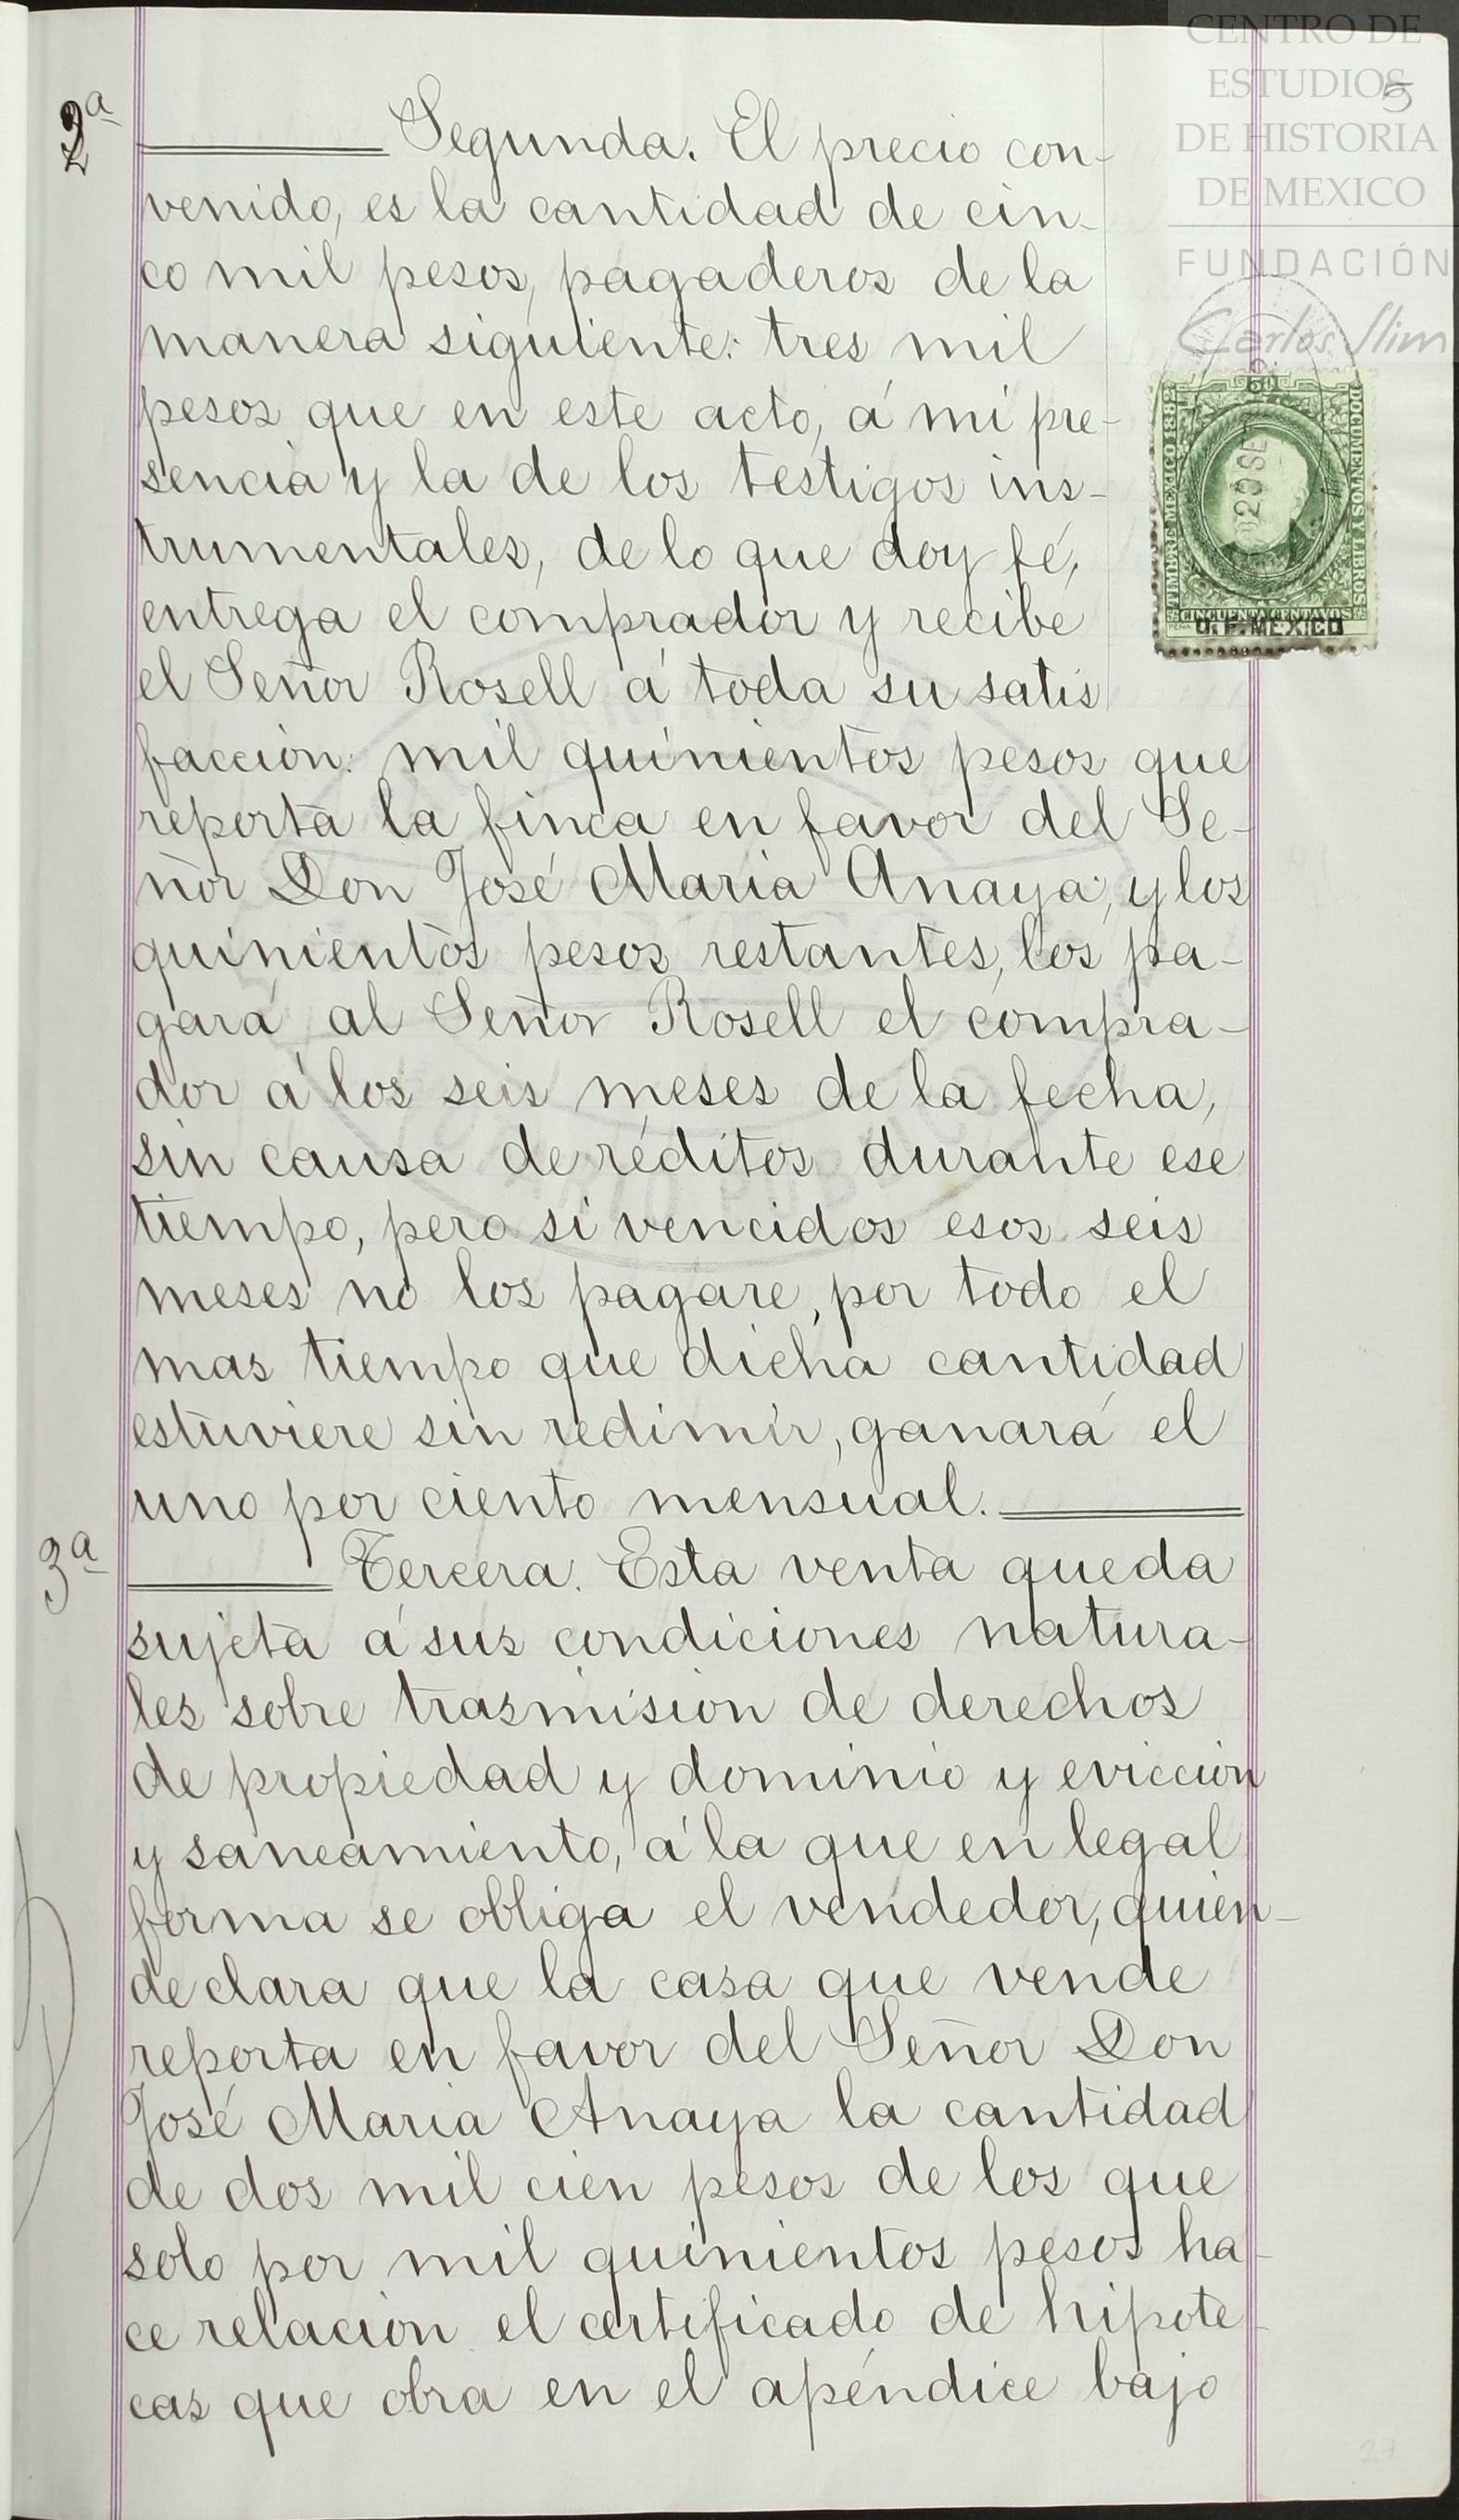 CENTRO DE
ESTUDIOS
DE HISTORIA
DE MEXICO
FUNDACIÓN
Carlos Slim
5
2ª
Segunda. El precio con-
venido, es la cantidad de cin-
co mil pesos, pagaderos de la
manera siguiente: tres mil
pesos que en este acto, á mi pre-
sencia y la de los testigos ins-
trumentales, de lo que doy fé,
entrega el comprador y recibe
el Señor Rosell á toda su satis
facción: mil quinientos pesos que
reporta la finca en favor del Se-
ñor Don José Maria Anaya, y los
quinientos pesos restantes, los pa-
gará al Señor Rosell el compra-
dor á los seis meses de la fecha,
sin causa de réditos durante ese
tiempo, pero si vencidos esos seis
meses no los pagare, por todo el
mas tiempo que dicha cantidad
estuviere sin redimir, ganará el
uno por ciento mensual.
3ª
Tercera. Esta venta queda
sujeta á sus condiciones natura-
les sobre trasmision de derechos
de propiedad y dominio y eviccion
y saneamiento, á la que en legal
forma se obliga el vendedor, quien-
declara que la casa que vende
reporta en favor del Señor Don
José Maria Anaya la cantidad
de dos mil cien pesos de los que
solo por mil quinientos pesos ha-
ce relacion el certificado de hipote-
cas que obra en el apéndice bajo
50
TIMBRE MEXICO 188
DOCUMENTOS Y LIBROS
CINCUENTA CENTAVOS
D. F. MEXICO
27